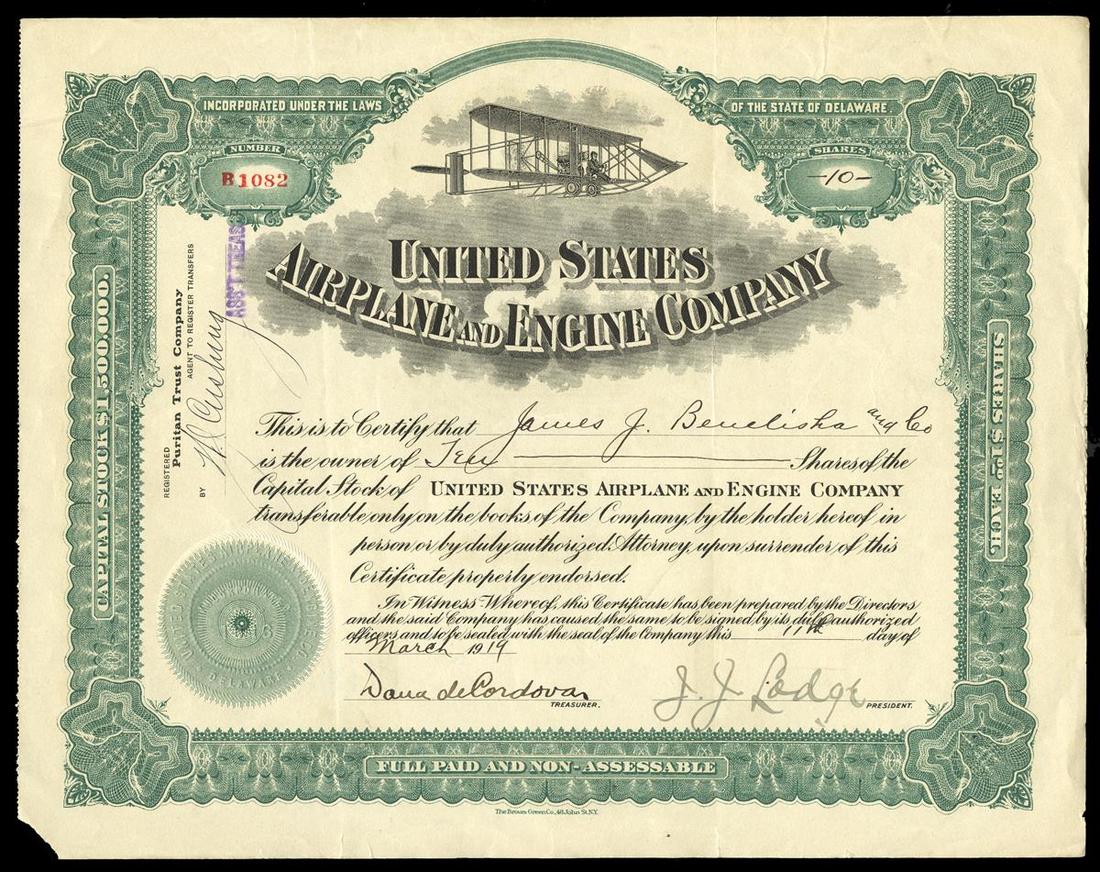 INCORPORATED UNDER THE LAWS
OF THE STATE OF DELAWARE
NUMBER
B1082
SHARES
-10-
UNITED STATES
AIRPLANE AND ENGINE COMPANY
CAPITAL STOCK $1,500,000.
SHARES $1.00 EACH.
REGISTERED
Puritan Trust Company
AGENT TO REGISTER TRANSFERS
BY
ASS'T TREAS
This is to Certify that James J. Benelisha and Co
is the owner of Ten Shares of the
Capital Stock of UNITED STATES AIRPLANE AND ENGINE COMPANY
transferable only on the books of the Company, by the holder hereof in
person or by duly authorized Attorney, upon surrender of this
Certificate properly endorsed.
In Witness Whereof, this Certificate has been prepared by the Directors
and the said Company has caused the same to be signed by its duly authorized
officers and to be sealed with the seal of the Company this 11th day of
March 1919
Dana de Cordova
TREASURER.
J. J. Lodge
PRESIDENT.
DELAWARE
FULL PAID AND NON-ASSESSABLE
The Brown Green Co., 48 John St. N.Y.